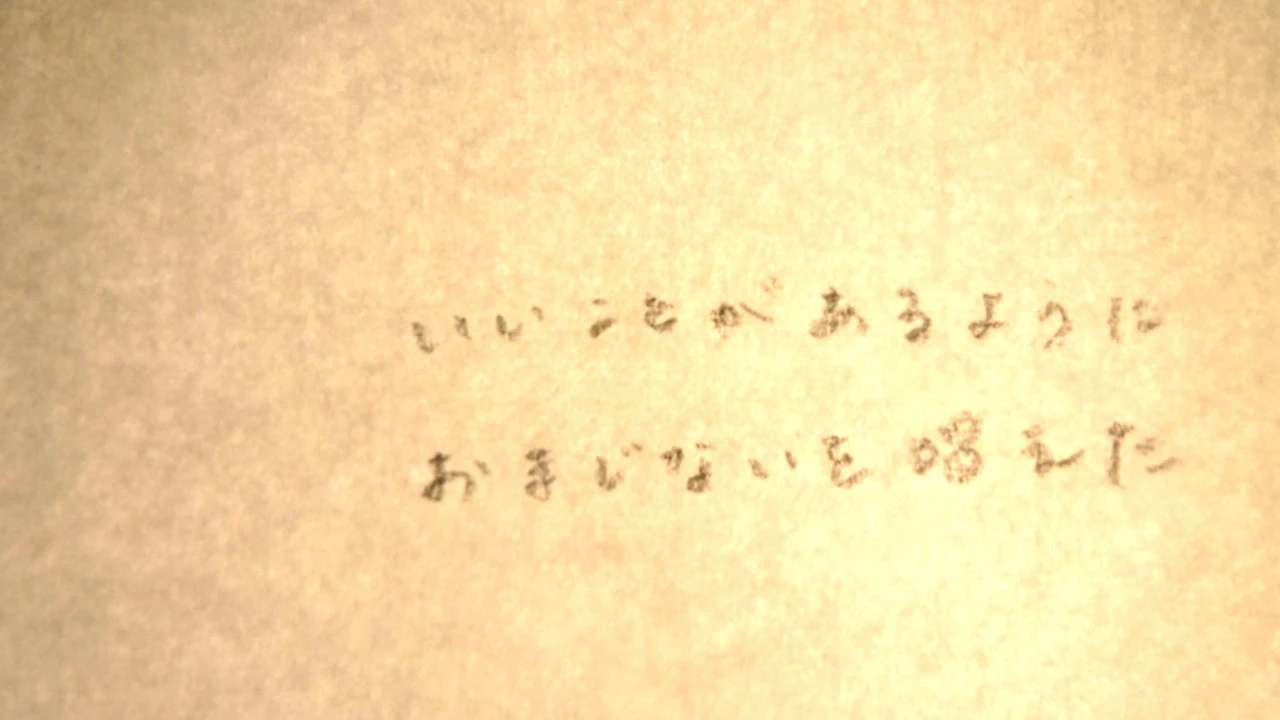 いいことがあるように
おまじないを唱えた